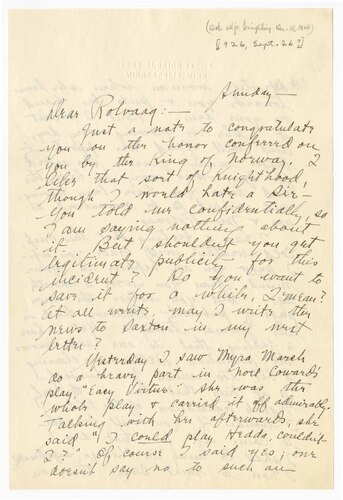 [1926, Sept. 26?]
Sunday —
Dear Rolvaag: —
Just a note to congratulate
you on the honor conferred on
you by the King of Norway. I
like that sort of knighthood,
though I would hate a Sir —
You told me confidentially, so
I am saying nothing about
it. But shouldn't you get
legitimate publicity for this
incident? Do you want to
save it for a while, I mean?
At all events, may I write the
news to in my next
letter?
Yesterday I saw Myra Marsh
do a heavy part in Noel Coward's
play, "Easy Virtue." She was the
whole play & carried it off admirably.
Talking with her afterwards, she
said "I could play Hedda, couldn't
I?" Of course I said yes; one
doesn't say no to such an